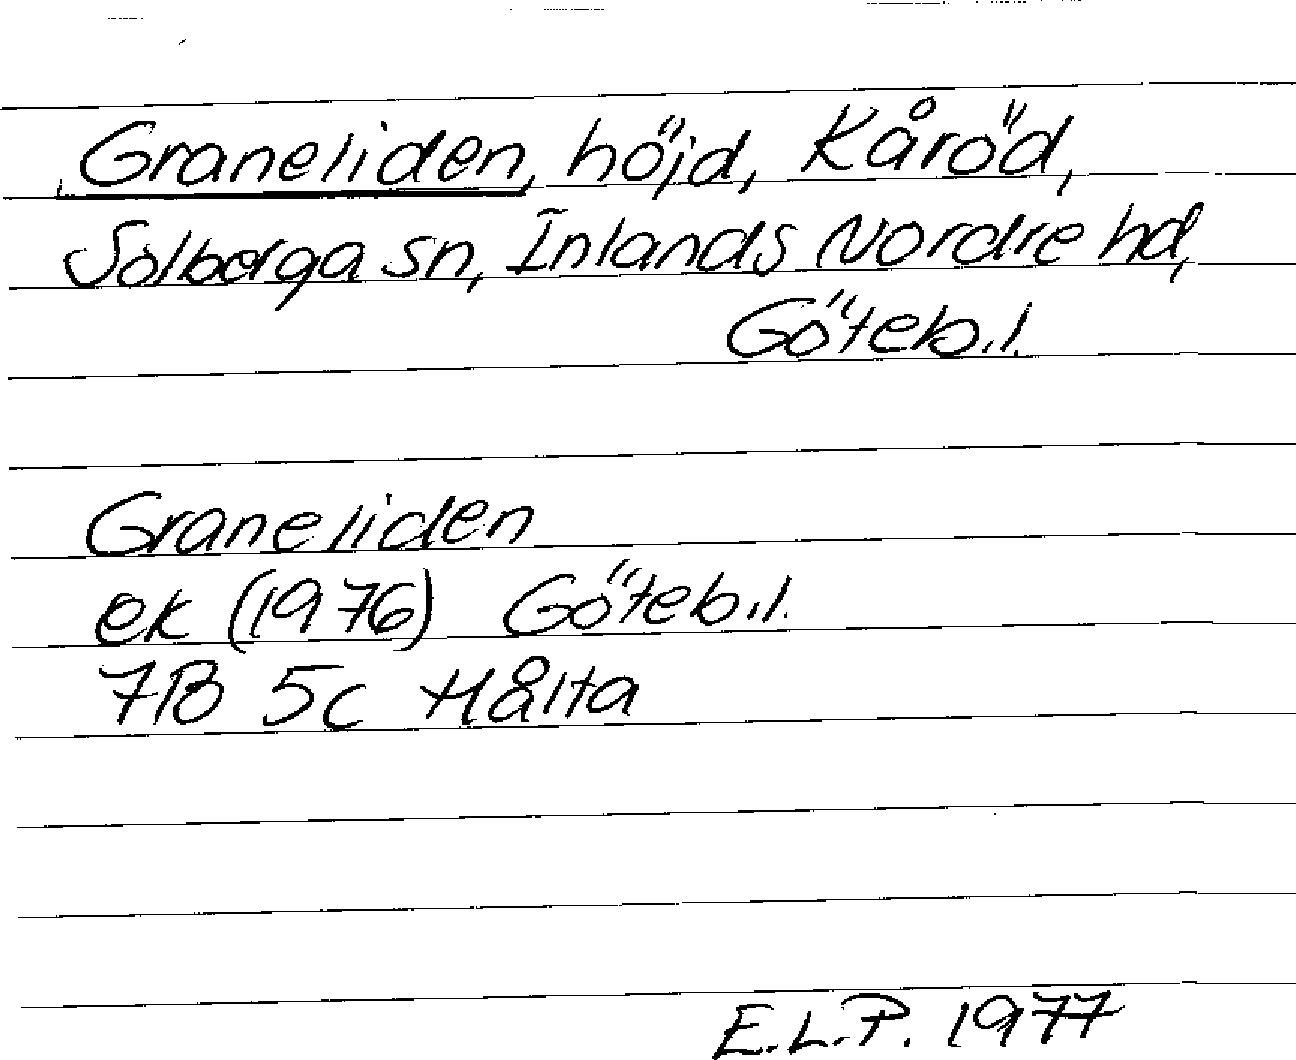 Graneliden, höjd, Kåröd,
Solberga sn, Inlands Nordre hd,
Göteb.l.
Graneliden
ek (1976) Göteb.l.
7B 5c Hålta
E.L.P. 1977